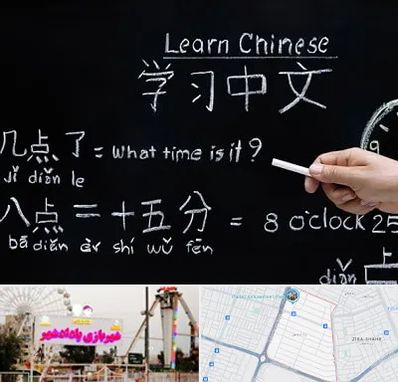 Learn Chinese
学习中文
几点了 = What time is it?
jǐ diǎn le
八点二十五分 = 8 o'clock 25
bā diǎn èr shí wǔ fēn
diǎn
上
شهربازی پاندا شهر
ZIBA SHAHR